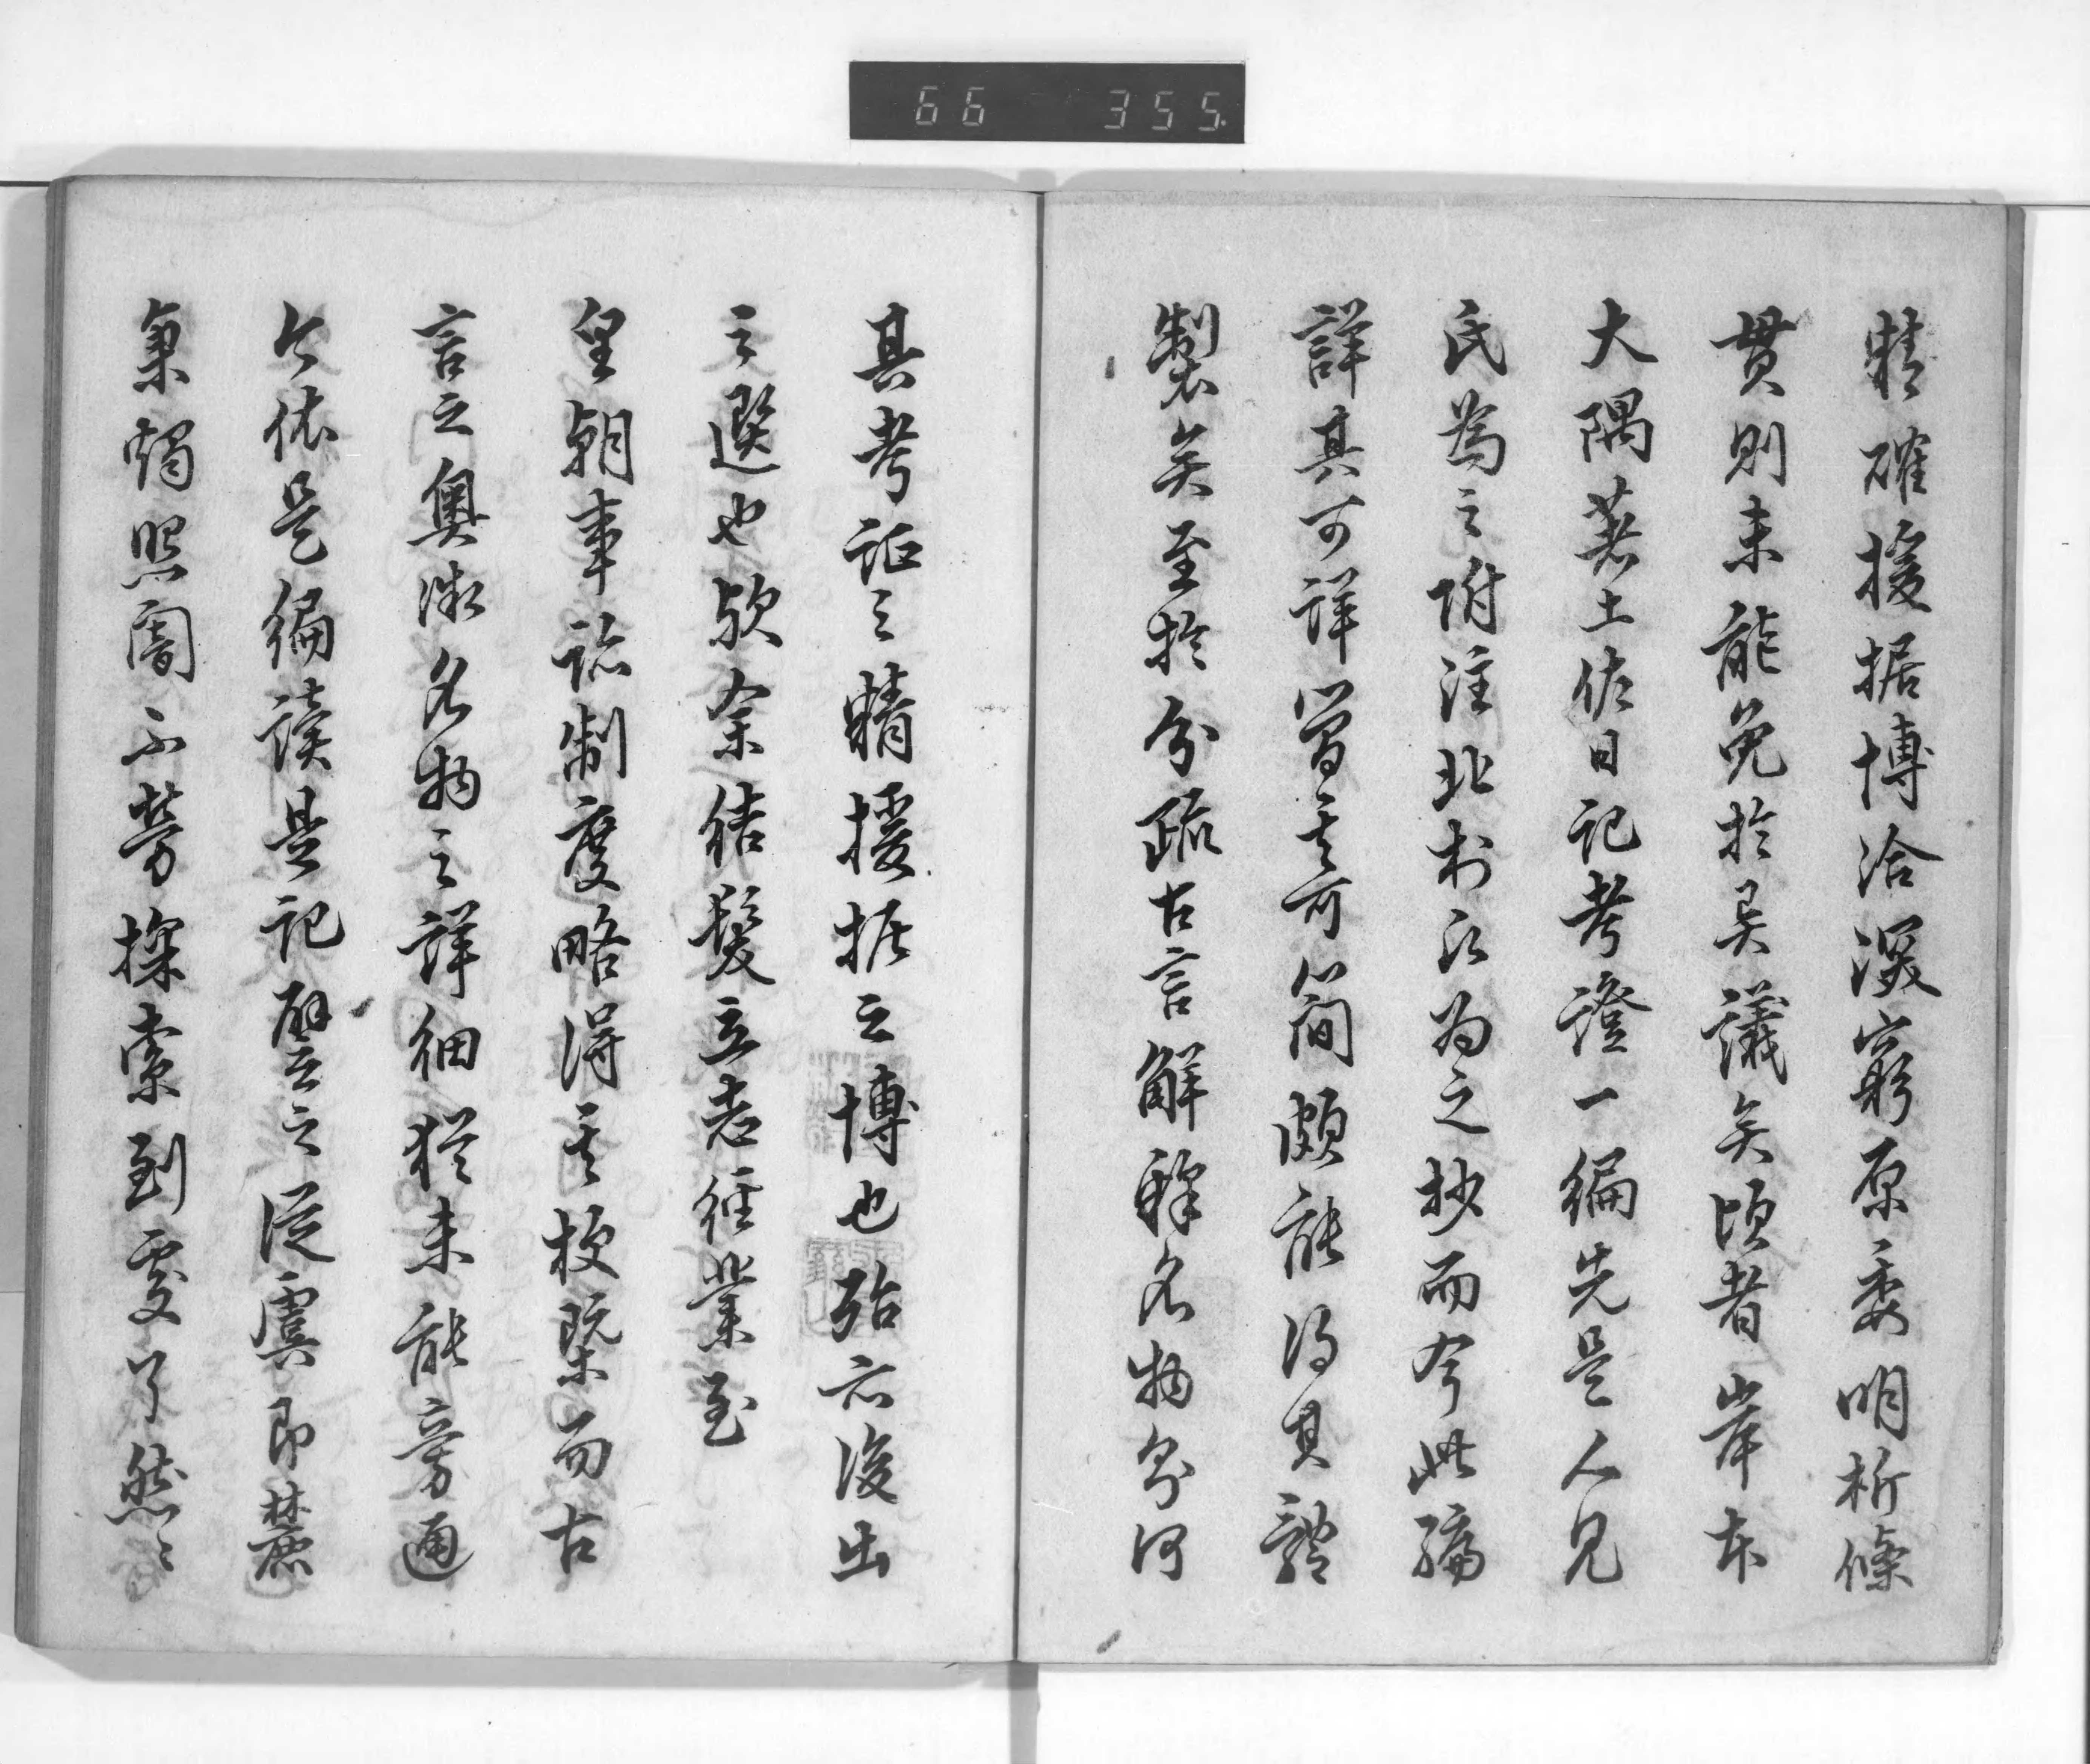 66 355.
精確援据博洽深窮原委明析條
貫則未能免於異議矣頃者岸本
大隅著土佐日記考證一編先是人見
氏為之附注北村氏為之抄而今此編
詳其可詳簡其可簡頗能得其體
製矣至於分疏古言解釋名物分何
其考証之精援拠之博也殆亦後出
之選也歟余結髮立志經業至
皇朝事詁制度略得其梗槩而古
言之奧渺名物之詳細猶未能旁通
今依是編讀是記譬之從虞即麓
秉燭照闇不勞探索到處了然〻